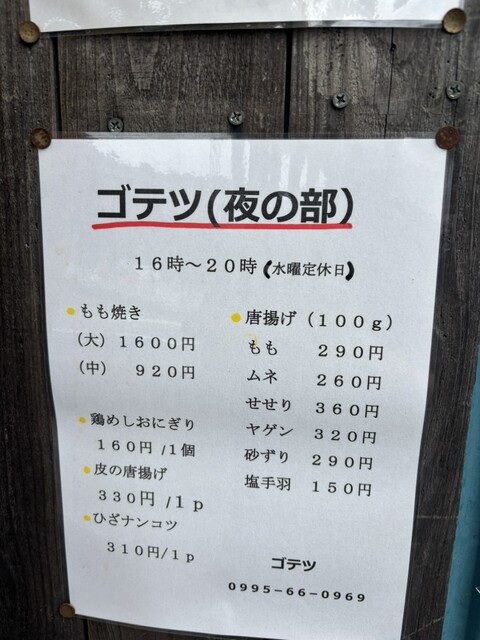 ゴテツ(夜の部)
16時～20時(水曜定休日)
●もも焼き
（大）1600円
（中） 920円
●鶏めしおにぎり
160円 /1個
●皮の唐揚げ
330円 /1p
●ひざナンコツ
310円/1p
●唐揚げ（100g）
もも 290円
ムネ 260円
せせり 360円
ヤゲン 320円
砂ずり 290円
塩手羽 150円
ゴテツ
0995-66-0969